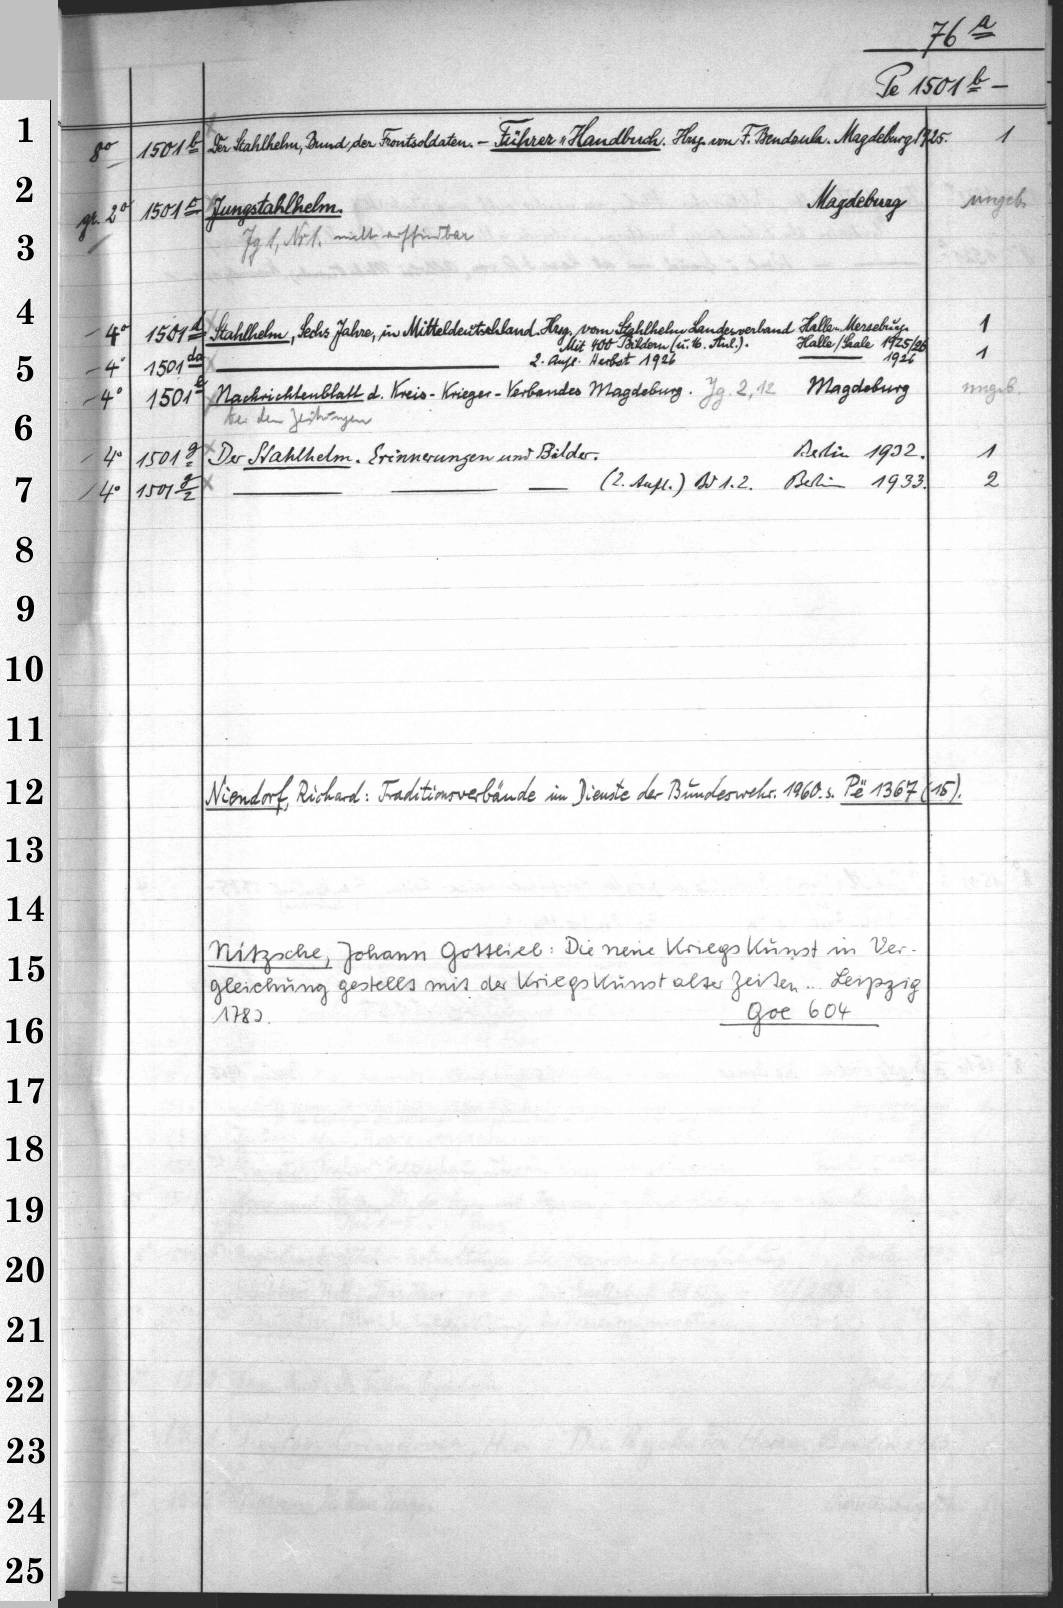 76 a
Pe 1501 b –
1
8° 1501 b Der Stahlhelm, Bund der Frontsoldaten. – Führer-Handbuch. Hrsg. von F. Bendzula. Magdeburg 1925. 1
2
gr. 2° 1501 c Jungstahlhelm. Magdeburg ungeb.
3
Jg 1, Nr 1. nicht auffindbar
4
4° 1501 d Stahlhelm, Sechs Jahre, in Mitteldeutschland. Hrsg. vom Stahlhelm Landesverband Halle-Merseburg. 1
Mit 400 Bildern (u. 16. Anl.). Halle/Saale 1925/26
5
4° 1501 da 2. Aufl. Herbst 1926 1926 1
4° 1501 e Nachrichtenblatt d. Kreis-Krieger-Verbandes Magdeburg. Jg. 2, 12 Magdeburg ungeb.
6
bei den Zeitungen
4° 1501 g Der Stahlhelm. Erinnerungen und Bilder. Berlin 1932. 1
7
4° 1501 g/2 (2. Aufl.) Bd 1.2. Berlin 1933. 2
8
9
10
11
12
Niendorf, Richard: Traditionsverbände im Dienste der Bundeswehr. 1960. s. Pë 1367 (15).
13
14
Nitzsche, Johann Gottlieb: Die neue Kriegskunst in Ver-
15
gleichung gestellt mit der Kriegskunst alter Zeiten .. Leipzig
16
Goe 604
17
18
19
20
21
22
23
24
25